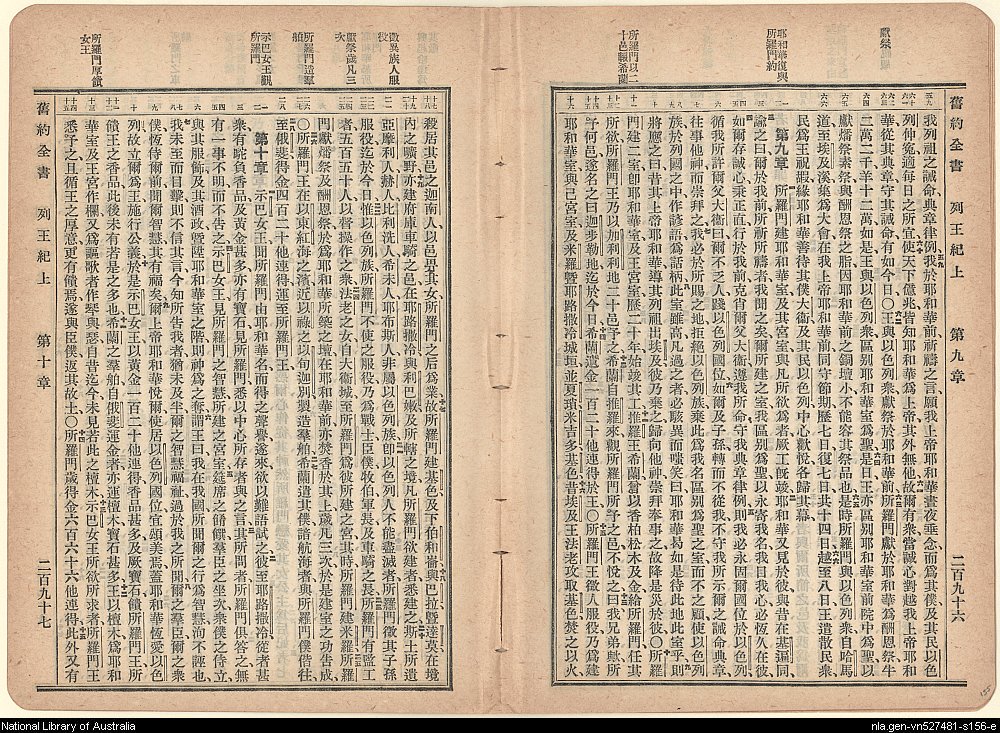 獻祭
耶和華復與
所羅門約
所羅門以二
十邑賜希蘭
舊約全書 列王紀上 第九章 二百九十六
我列祖之誡命典章律例、我於耶和華前祈禱之言、願我上帝耶和華晝夜垂念、而爲其僕、及其民以色
列伸寃、適每日之所宜、使天下億兆、皆知耶和華爲上帝、其外無他、故爾有衆、當誠心對越我上帝耶和
華、從其典章、守其誡命、有如今日、○王與以色列衆獻祭於耶和華前、所羅門獻於耶和華爲酬恩祭、牛
二萬二千、羊十二萬、如是王與以色列衆區別耶和華室爲聖、是日王亦區別耶和華室前院中爲聖、以
獻燔祭素祭、與酬恩祭之脂、因耶和華前之銅壇小、不能容其祭品也、是時所羅門與以色列衆自哈馬
道至埃及溪、集爲大會、在我上帝耶和華前、同守節期、歷七日復七日、共十四日、越至八日、王遣散民衆、
民爲王祝嘏、緣耶和華善待其僕大衞、及其民以色列、中心歡悅、各歸其幕、
第九章 所羅門建耶和華室、及其宮室、與凡所欲爲者、厥工旣竣、耶和華又見於彼、與昔在基遍同、
諭之曰、爾於我前所祈所禱者、我聞之矣、爾所建之室、我區別爲聖、以永寄我名、我目我心、必恆久在彼、
如爾存誠心、秉正直、行於我前、克肖爾父大衞、遵我所命、守我典章律例、則我必永保爾國位於以色列、
循我所許爾父大衞曰、爾不乏人踐以色列國位、如爾及子孫、轉而不從我、不守我所示爾之誡命典章、
往事他神而崇拜之、我必於所賜之地、拒絕以色列族、棄此爲我名區別爲聖之室、而不之顧、使以色列
族於列國之中、作諺語、爲話柄、此室雖高、凡過之者、必駭異而嗤笑曰、耶和華曷如是待此地此室乎、則
將應之曰、昔其上帝耶和華、導其列祖出埃及、彼乃棄之、歸向他神、崇拜奉事之、故耶和華降是災於彼、○所羅
門建二室、卽耶和華室及王宮室、歷二十年始竣、其工、推羅王希蘭曾以香柏松木及金、給所羅門、任其
所欲、所羅門王乃以加利利地二十邑、予之、希蘭自推羅來、觀所羅門所予之邑、不悅之曰、我兄弟歟、所
予何邑、遂名之曰迦步勒地、迄於今日、希蘭遣金一百二十他連得於王、○所羅門王徵人服役、乃爲建
耶和華室、與己宮室、及米羅、曁耶路撒冷城垣、並夏瑣米吉多基色、昔埃及王法老攻取基色、焚之以火、
徵異族人服
役
獻祭歲凡三
次
所羅門造羣
舶
示巴女王覲
所羅門
所羅門厚饋
女王
殺居其邑之迦南人、以邑畀其女所羅門之后爲業、故所羅門建基色、及下伯和崙、與巴拉、曁達莫在境
內之曠野、亦建府庫車騎之邑、在耶路撒冷、與利巴嫩、及所轄之境、凡所羅門欲建者悉建之、斯土所遺
亞摩利人、赫人、比利洗人、希未人、耶布斯人、非屬以色列族、卽以色列人不能盡滅者、所羅門徵其子孫
服役、迄於今日、惟以色列族、所羅門不使之服役、乃爲戰士臣僕牧伯軍長、及車騎之長、所羅門有監工
者五百五十人、以督操作之衆、法老之女自大衞城至所羅門爲彼所建之宮、其時所羅門建米羅、所羅
門獻燔祭及酬恩祭、於爲耶和華所築之壇、在耶和華前、亦焚香於其上、歲凡三次、於是建室之功告成、
○所羅門王在以東紅海之濱、近以祿之以旬迦別、製造羣舶、希蘭遣其僕諳航海者、與所羅門僕偕往、
至俄斐、得金四百二十他連得、運至所羅門王、
第十章 示巴女王聞所羅門由耶和華名而得之聲譽、遂來、欲以難語試之、彼至耶路撒冷、從者甚
衆、有駝負香品、及黃金甚多、亦有寶石、見所羅門、悉以中心所存者與之言、其所問者、所羅門俱答之、無
有一事不明而不告之、示巴女王見所羅門之智慧、所建之宮室、筵席之餚饌、羣臣之坐次、衆僕之侍立、
與其服飾、及其酒政、曁陞耶和華室之階、則神爲之奪、謂王曰、我在我國所聞爾之行爲智慧、洵不誣也、
我未至而目擊、則不信其言、今知所告我者、猶未及半、爾之智慧福祉、過於我之所聞、爾之羣臣爾之衆
僕、恆侍爾前、聞爾智慧、其有福矣、爾上帝耶和華悅爾、使居以色列國位、宜頌美焉、蓋耶和華恆愛以色
列、故立爾爲王、施行公義、於是示巴女王以黃金一百二十他連得、香品甚多、及厥寶石、饋所羅門王、所
饋王之香品、此後未有若是之多也、希蘭之羣舶、自俄斐運金者、亦運檀木寶石甚多、王以檀木爲耶和
華室及王宮作欄、又爲謳歌者作琴與瑟、自昔迄今、未見若此之檀木、示巴女王所欲所求者、所羅門王
悉予之、且循王之厚意、更有饋焉、遂與臣僕返其故土、○所羅門歲得金六百六十六他連得、此外又有
舊約全書 列王紀上 第十章 二百九十七
155
National Library of Australia
nla.gen-vn527481-s156-e